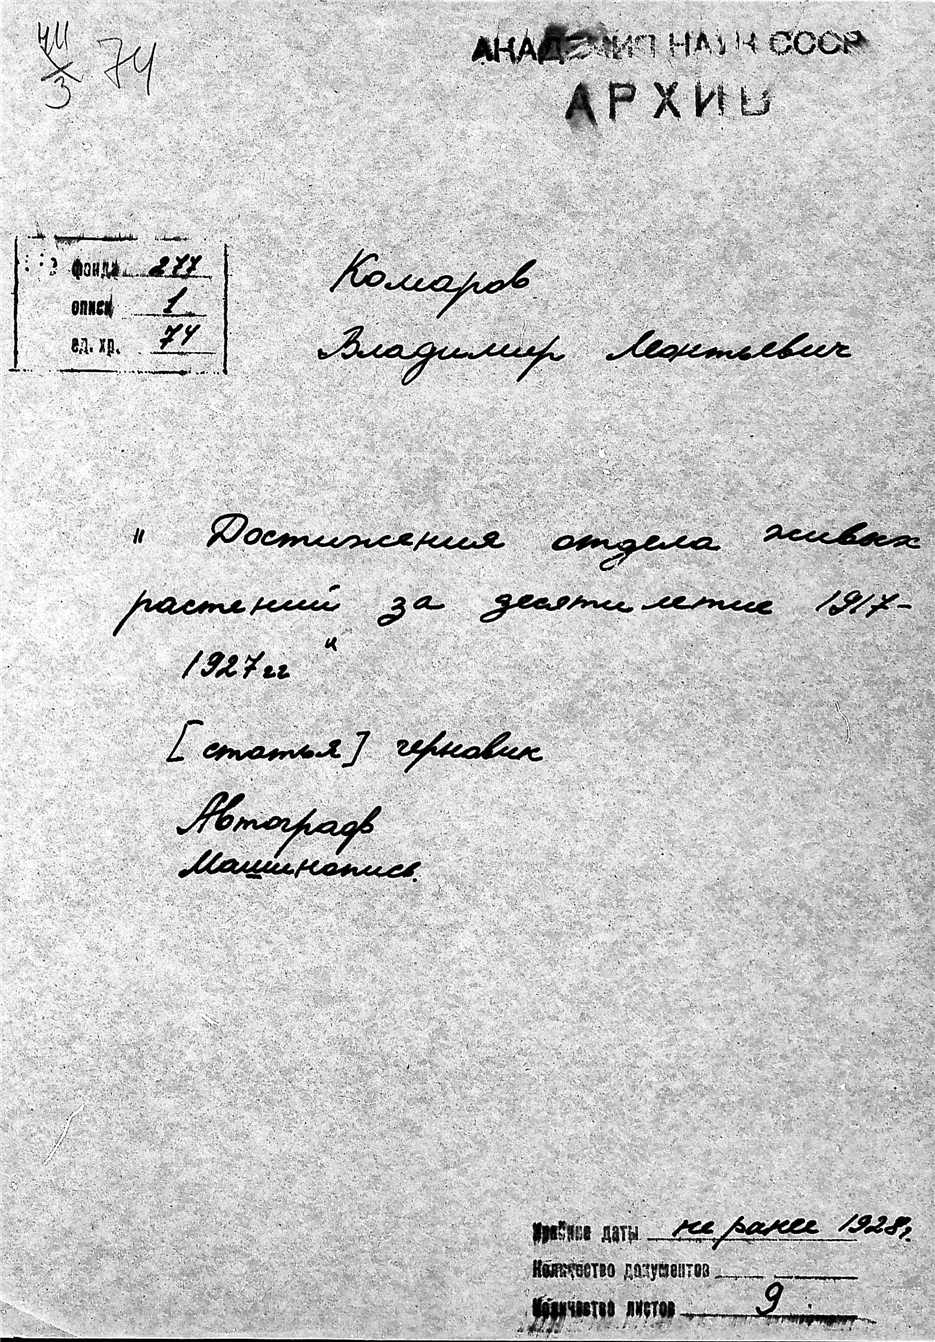 74
АКАДЕМИЯ НАУК СССР
АРХИВ
№ фонда 277
описи 1
ед. хр. 74
Комаров
Владимир Леонтьевич
"Достижения отдела живых
растений за десятилетие 1917-
1927 гг"
[статья] черновик
Автограф
Машинопись.
Крайние даты не ранее 1928г.
Количество документов
Количество листов 9